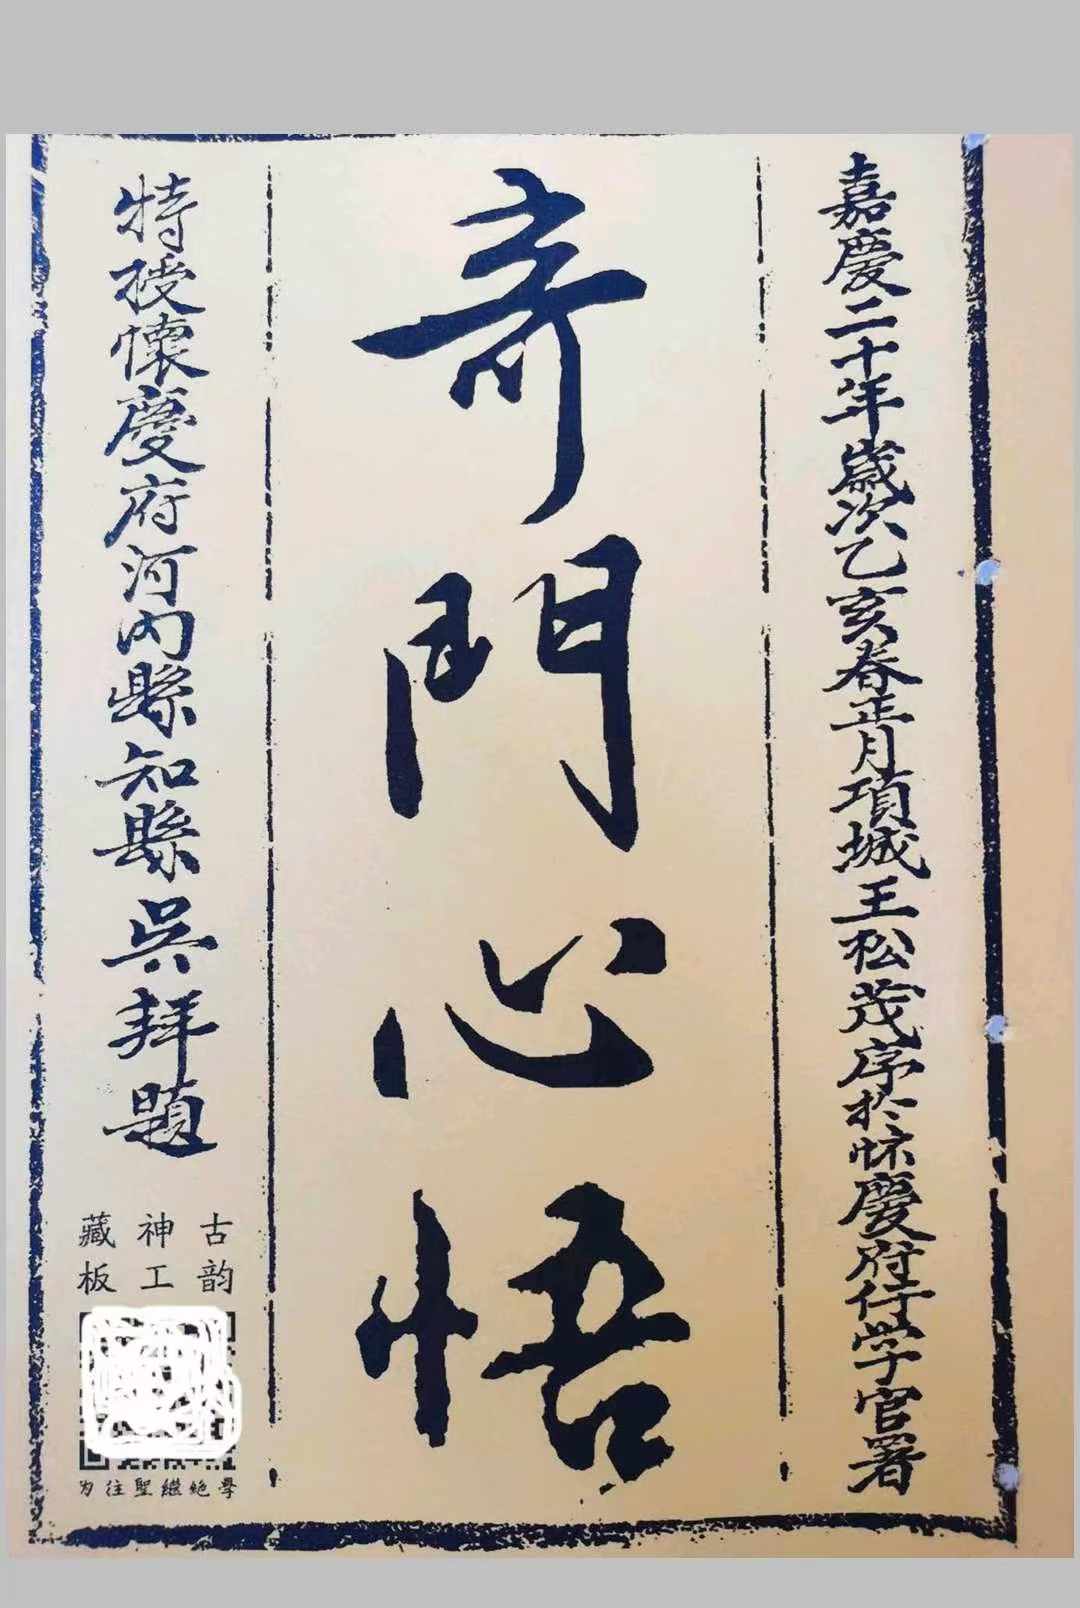 嘉慶二十年歲次乙亥春正月項城王松茂序於怀慶府行学官署
奇門心悟
特授懷慶府河内縣知縣吳拜題
古韵
神工
藏板
为往聖繼绝學